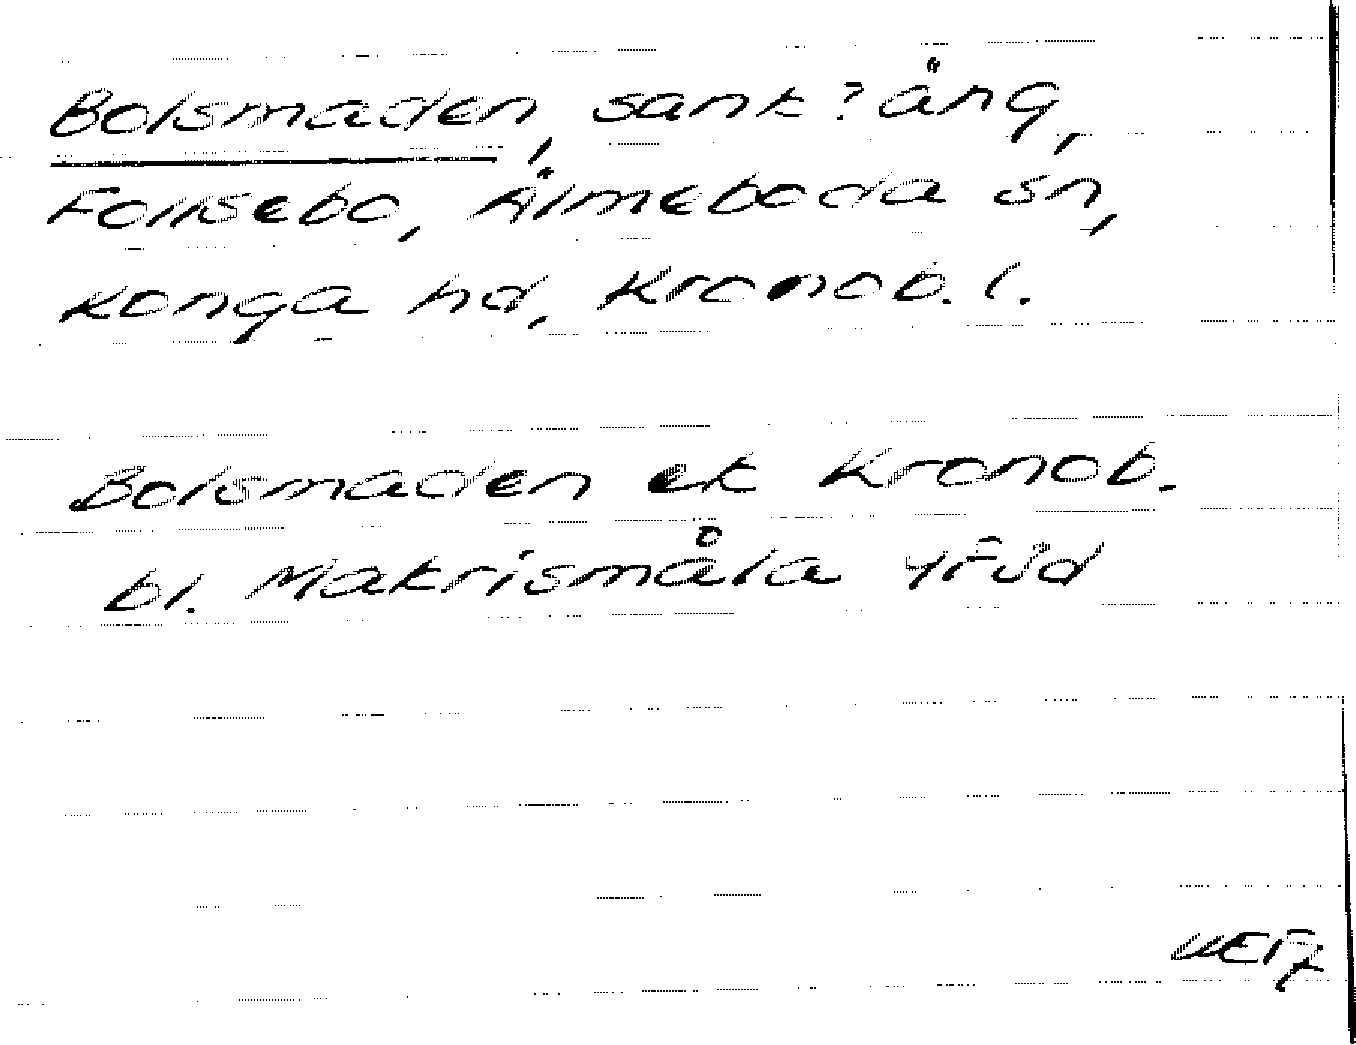 Bolsmaden, sank? äng,
Follsebo, Älmeboda sn,
Konga hd, Kronob. l.
Bolsmaden ek Kronob.
bl. Makrismåla 4F3d